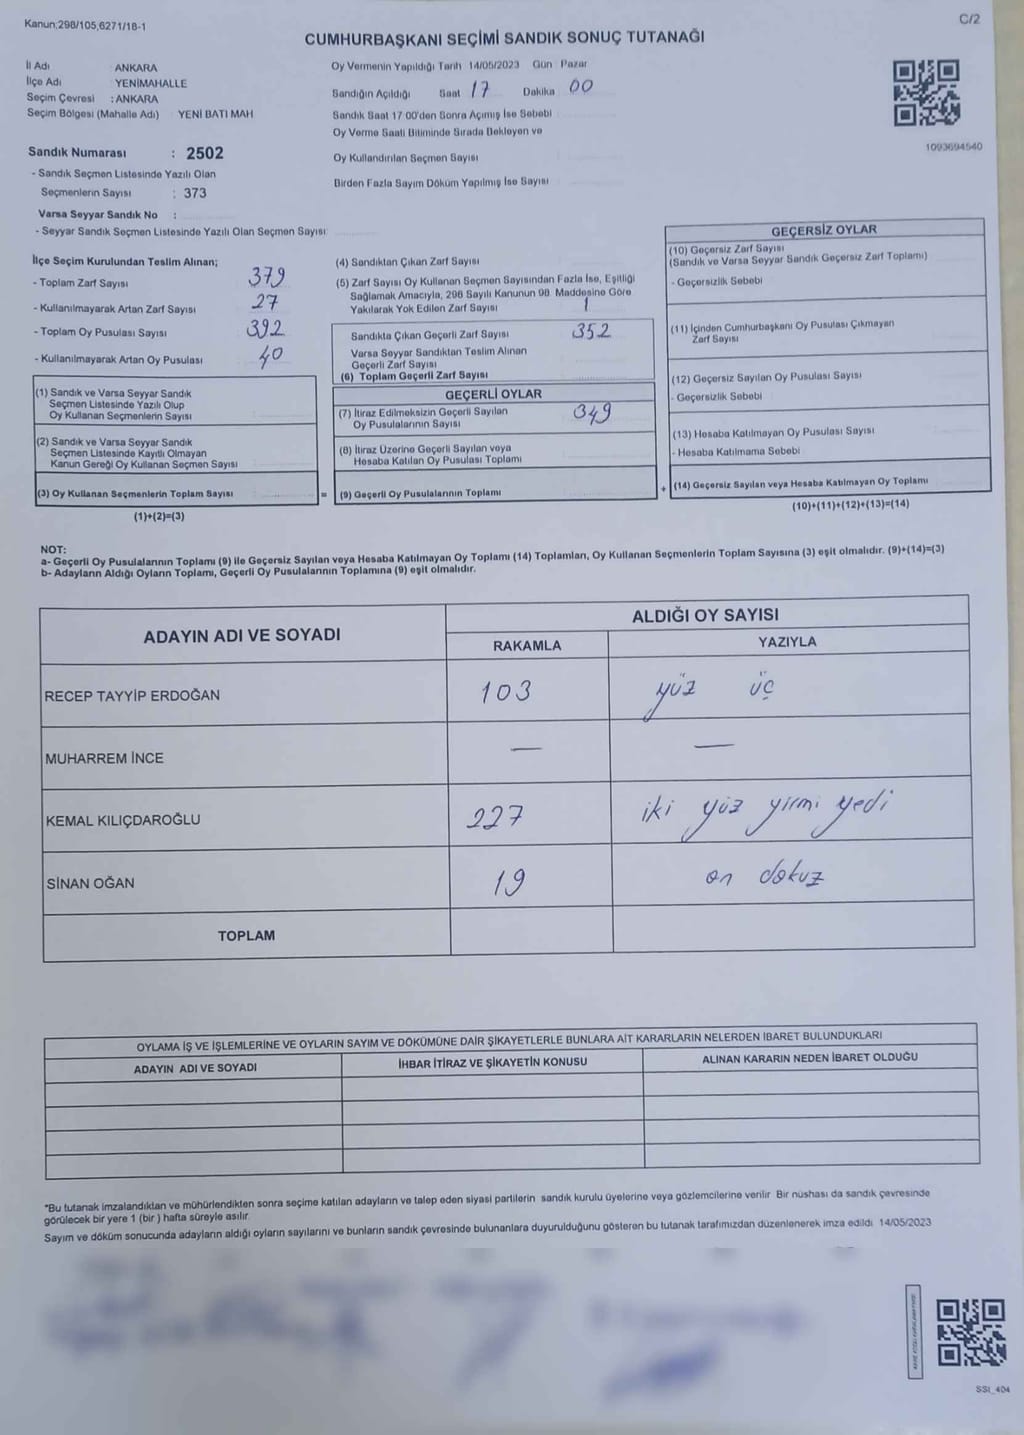 Kanun;298/105,6271/18-1
C/2
CUMHURBAŞKANI SEÇİMİ SANDIK SONUÇ TUTANAĞI
İl Adı ANKARA
İlçe Adı YENİMAHALLE
Seçim Çevresi : ANKARA
Seçim Bölgesi (Mahalle Adı) YENİ BATI MAH
Sandık Numarası : 2502
- Sandık Seçmen Listesinde Yazılı Olan
Seçmenlerin Sayısı : 373
Varsa Seyyar Sandık No :
- Seyyar Sandık Seçmen Listesinde Yazılı Olan Seçmen Sayısı
Oy Vermenin Yapıldığı Tarih 14/05/2023 Gün Pazar
Sandığın Açıldığı Saat 17 Dakika 00
Sandık Saat 17 00'den Sonra Açımış İse Sebebi
Oy Verme Saati Bitiminde Sırada Bekleyen ve
Oy Kullandırılan Seçmen Sayısı
Birden Fazla Sayım Döküm Yapılmış İse Sayısı
1093694540
İlçe Seçim Kurulundan Teslim Alınan;
- Toplam Zarf Sayısı 379
- Kullanılmayarak Artan Zarf Sayısı 27
- Toplam Oy Pusulası Sayısı 392
- Kullanılmayarak Artan Oy Pusulası 40
(1) Sandık ve Varsa Seyyar Sandık
Seçmen Listesinde Yazılı Olup
Oy Kullanan Seçmenlerin Sayısı
(2) Sandık ve Varsa Seyyar Sandık
Seçmen Listesinde Kayıtlı Olmayan
Kanun Gereği Oy Kullanan Seçmen Sayısı
(3) Oy Kullanan Seçmenlerin Toplam Sayısı
=
(1)+(2)=(3)
(4) Sandıktan Çıkan Zarf Sayısı
(5) Zarf Sayısı Oy Kullanan Seçmen Sayısından Fazla İse, Eşitliği
Sağlamak Amacıyla, 298 Sayılı Kanunun 98. Maddesine Göre
Yakılarak Yok Edilen Zarf Sayısı 1
Sandıkta Çıkan Geçerli Zarf Sayısı 352
Varsa Seyyar Sandıktan Teslim Alınan
Geçerli Zarf Sayısı
(6) Toplam Geçerli Zarf Sayısı
GEÇERLİ OYLAR
(7) İtiraz Edilmeksizin Geçerli Sayılan
Oy Pusulalarının Sayısı 349
(8) İtiraz Üzerine Geçerli Sayılan veya
Hesaba Katılan Oy Pusulası Toplamı
(9) Geçerli Oy Pusulalarının Toplamı
+
GEÇERSİZ OYLAR
(10) Geçersiz Zarf Sayısı
(Sandık ve Varsa Seyyar Sandık Geçersiz Zarf Toplamı)
- Geçersizlik Sebebi
(11) İçinden Cumhurbaşkanı Oy Pusulası Çıkmayan
Zarf Sayısı
(12) Geçersiz Sayılan Oy Pusulası Sayısı
- Geçersizlik Sebebi
(13) Hesaba Katılmayan Oy Pusulası Sayısı
- Hesaba Katılmama Sebebi
(14) Geçersiz Sayılan veya Hesaba Katılmayan Oy Toplamı
(10)+(11)+(12)+(13)=(14)
NOT:
a- Geçerli Oy Pusulalarının Toplamı (9) ile Geçersiz Sayılan veya Hesaba Katılmayan Oy Toplamı (14) Toplamları, Oy Kullanan Seçmenlerin Toplam Sayısına (3) eşit olmalıdır. (9)+(14)=(3)
b- Adayların Aldığı Oyların Toplamı, Geçerli Oy Pusulalarının Toplamına (9) eşit olmalıdır.
ADAYIN ADI VE SOYADI
ALDIĞI OY SAYISI
RAKAMLA YAZIYLA
RECEP TAYYİP ERDOĞAN 103 yüz üç
MUHARREM İNCE — —
KEMAL KILIÇDAROĞLU 227 iki yüz yirmi yedi
SİNAN OĞAN 19 on dokuz
TOPLAM
OYLAMA İŞ VE İŞLEMLERİNE VE OYLARIN SAYIM VE DÖKÜMÜNE DAİR ŞİKAYETLERLE BUNLARA AİT KARARLARIN NELERDEN İBARET BULUNDUKLARI
ADAYIN ADI VE SOYADI İHBAR İTİRAZ VE ŞİKAYETİN KONUSU ALINAN KARARIN NEDEN İBARET OLDUĞU
*Bu tutanak imzalandıktan ve mühürlendikten sonra seçime katılan adayların ve talep eden siyasi partilerin sandık kurulu üyelerine veya gözlemcilerine verilir Bir nüshası da sandık çevresinde
görülecek bir yere 1 (bir ) hafta süreyle asılır.
Sayım ve döküm sonucunda adayların aldığı oyların sayılarını ve bunların sandık çevresinde bulunanlara duyurulduğunu gösteren bu tutanak tarafımızdan düzenlenerek imza edildi 14/05/2023
SSI_404